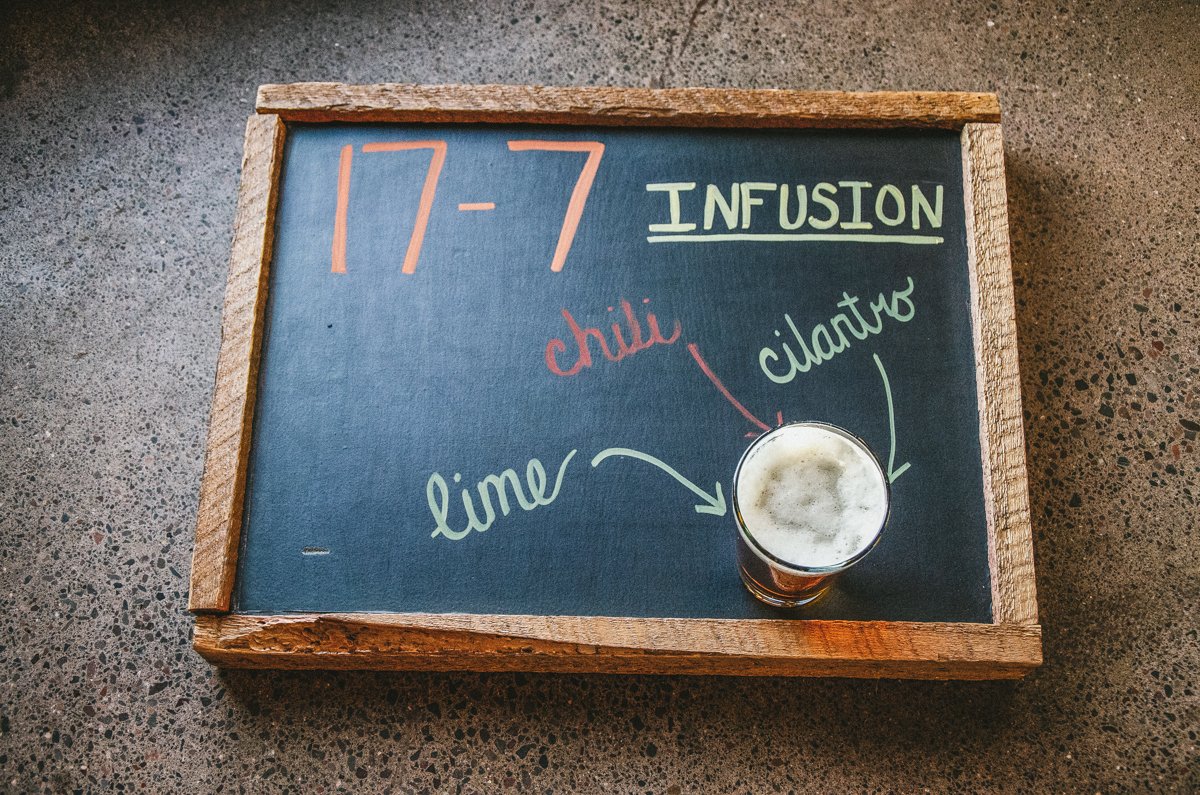 17-7
INFUSION
chili
cilantro
lime